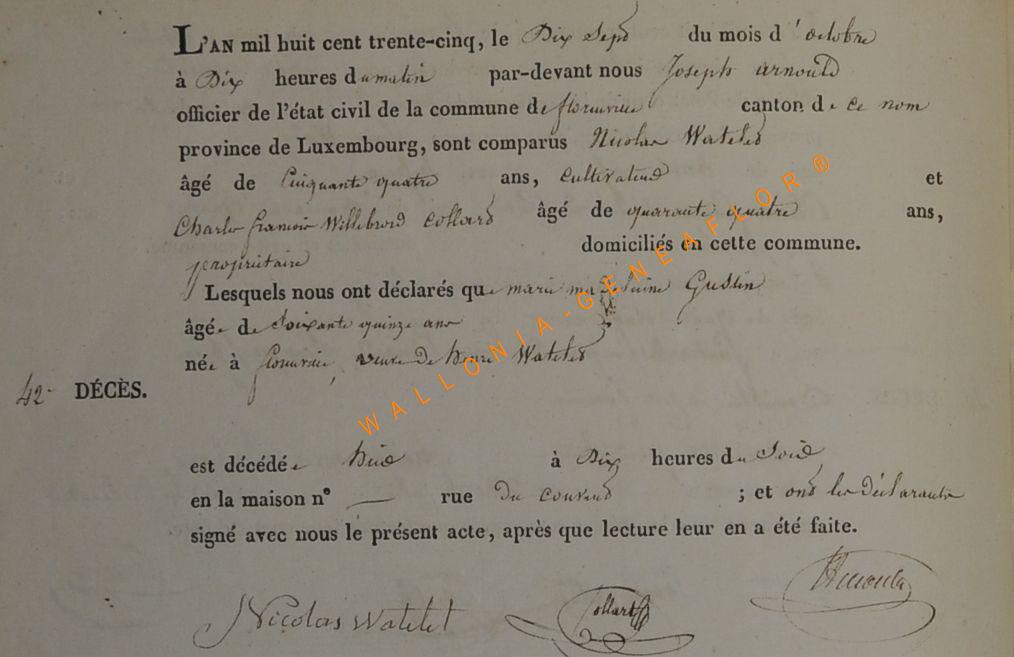 L'AN mil huit cent trente-cinq, le Dix Sept du mois d'octobre
à Dix heures du matin par-devant nous Joseph arnould
officier de l'état civil de la commune de florenville canton de ce nom
province de Luxembourg, sont comparus Nicolas Watelet
âgé de Cinquante quatre ans, Cultivateur et
Charles françois Willebrord Collard âgé de quarante quatre ans,
propriétaire domiciliés en cette commune.
Lesquels nous ont déclarés que marie Guslin
âgée de Soixante quinze ans
née à veuve de henri Watelet
42 DÉCÈS.
est décédée hier à Dix heures du Soir
en la maison n° — rue Du couvent ; et ont les Déclarants
signé avec nous le présent acte, après que lecture leur en a été faite.
Nicolas Watelet Collard Arnould
WALLONIA-GENEAFLOR ®